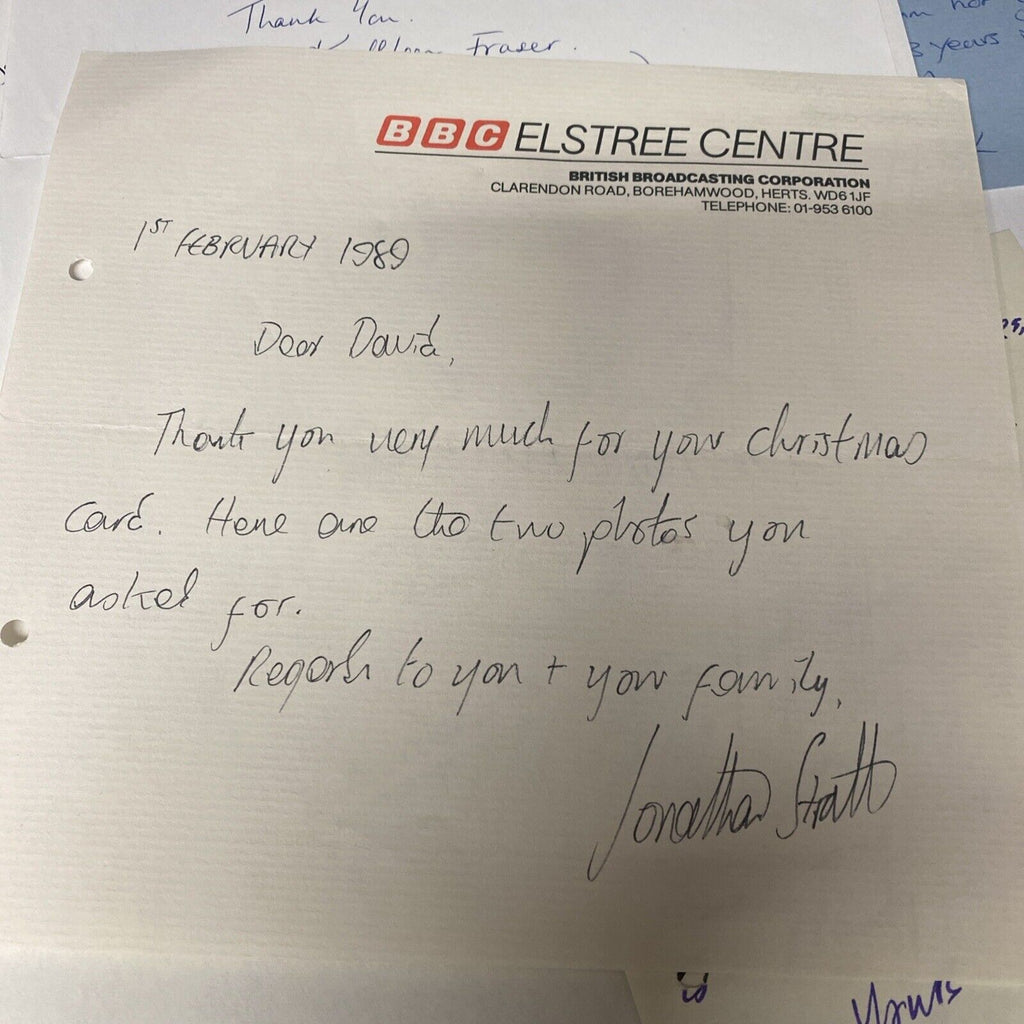 Thank You.
Fraser.
3 years
BBC ELSTREE CENTRE
BRITISH BROADCASTING CORPORATION
CLARENDON ROAD, BOREHAMWOOD, HERTS. WD6 1JF
TELEPHONE: 01-953 6100
1ST FEBRUARY 1989
Dear David,
Thank you very much for your Christmas
card. Here are the two photos you
asked for.
Regards to you + your family,
Jonathan Stratt
Yours